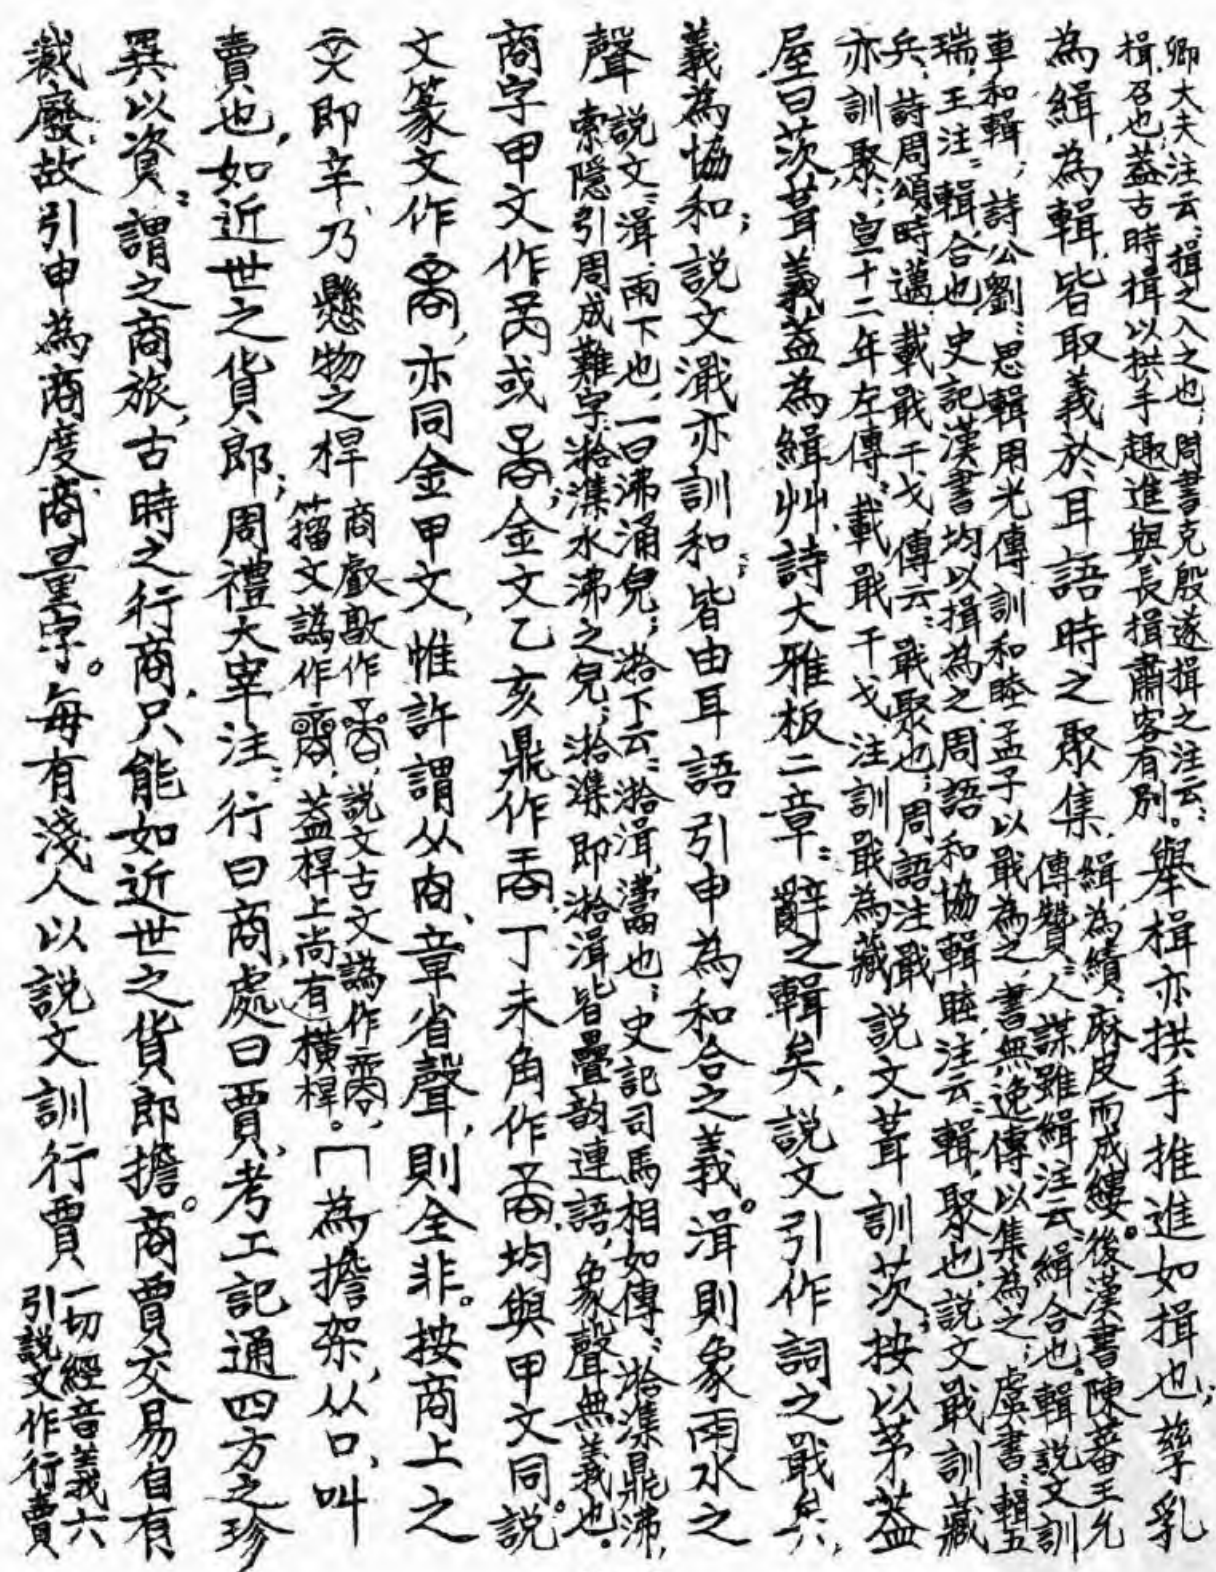 卿大夫注云：揖之入之也；周書克殷遂揖之注云：
揖召也，葢古時揖以拱手趣進與長揖肅客有別。舉揖亦拱手推進如揖也；孳乳
為緝，為輯，皆取義於耳語時之聚集，緝為績，麻皮而成縷。後漢書陳蕃王允
傳贊：人謀雖緝注云：緝合也。輯說文訓
車和輯；詩公劉：思輯用光傳訓和睦孟子以戢為之，書無逸傳以集為之；虞書：輯五
瑞，王注：輯，合也，史記漢書均以揖為之周語和協輯睦注云：輯，聚也，說文戢訓藏
兵，詩周頌時邁：載戢干戈，傳云：戢聚也；周語注戢
亦訓聚；宣十二年左傳：載戢干戈注訓戢為藏說文葺訓茨，按以茅葢
屋曰茨，葺義葢為緝艸，詩大雅板二章：辭之輯矣，說文引作詞之戢矣，
義為協和；說文濈亦訓和；皆由耳語引申為和合之義。湒則象雨水之
聲說文：湒，雨下也，一曰沸涌皃；湁下云：湁湒，鬻也；史記司馬相如傳：湁潗鼎沸，
索隱引周成難字：湁潗水沸之皃；湁潗即湁湒皆疊韵連語，象聲無義也。
商字甲文作或，金文乙亥鼎作，丁未角作，均與甲文同。說
文篆文作，亦同金甲文，惟許謂从㕯、章省聲，則全非。按商上之
即辛，乃懸物之桿商𣪘作，說文古文譌作，
籀文譌作，葢桿上尚有橫桿。冂為擔架，从口，叫
賣也，如近世之貨郎；周禮大宰注：行曰商，處曰賈，考工記通四方之珍
異以資：謂之商旅，古時之行商，只能如近世之貨郎擔。商賈交易自有
裁廢，故引申為商度商量字。每有淺人以說文訓行賈一切經音義六
引說文作行賣